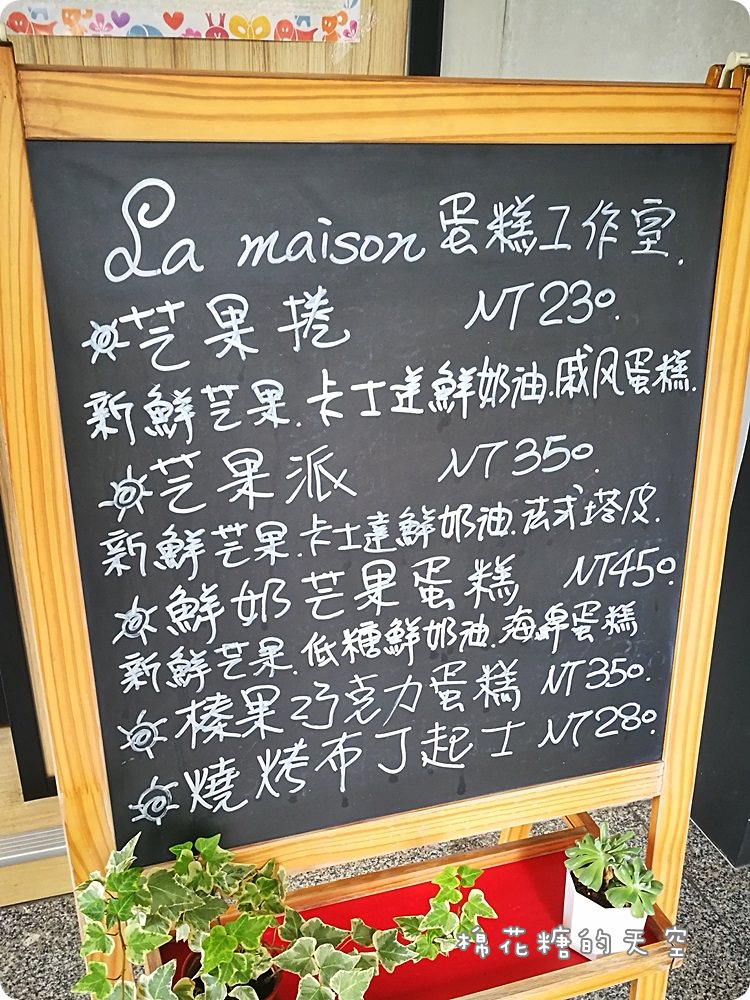 La maison 蛋糕工作室.
芒果捲 NT230.
新鮮芒果.卡士達鮮奶油.戚风蛋糕.
芒果派 NT350.
新鮮芒果.卡士達鮮奶油.法式塔皮.
鮮奶芒果蛋糕 NT450.
新鮮芒果.低糖鮮奶油.海綿蛋糕
榛果巧克力蛋糕 NT350.
燒烤布丁起士 NT280.
棉花糖的天空